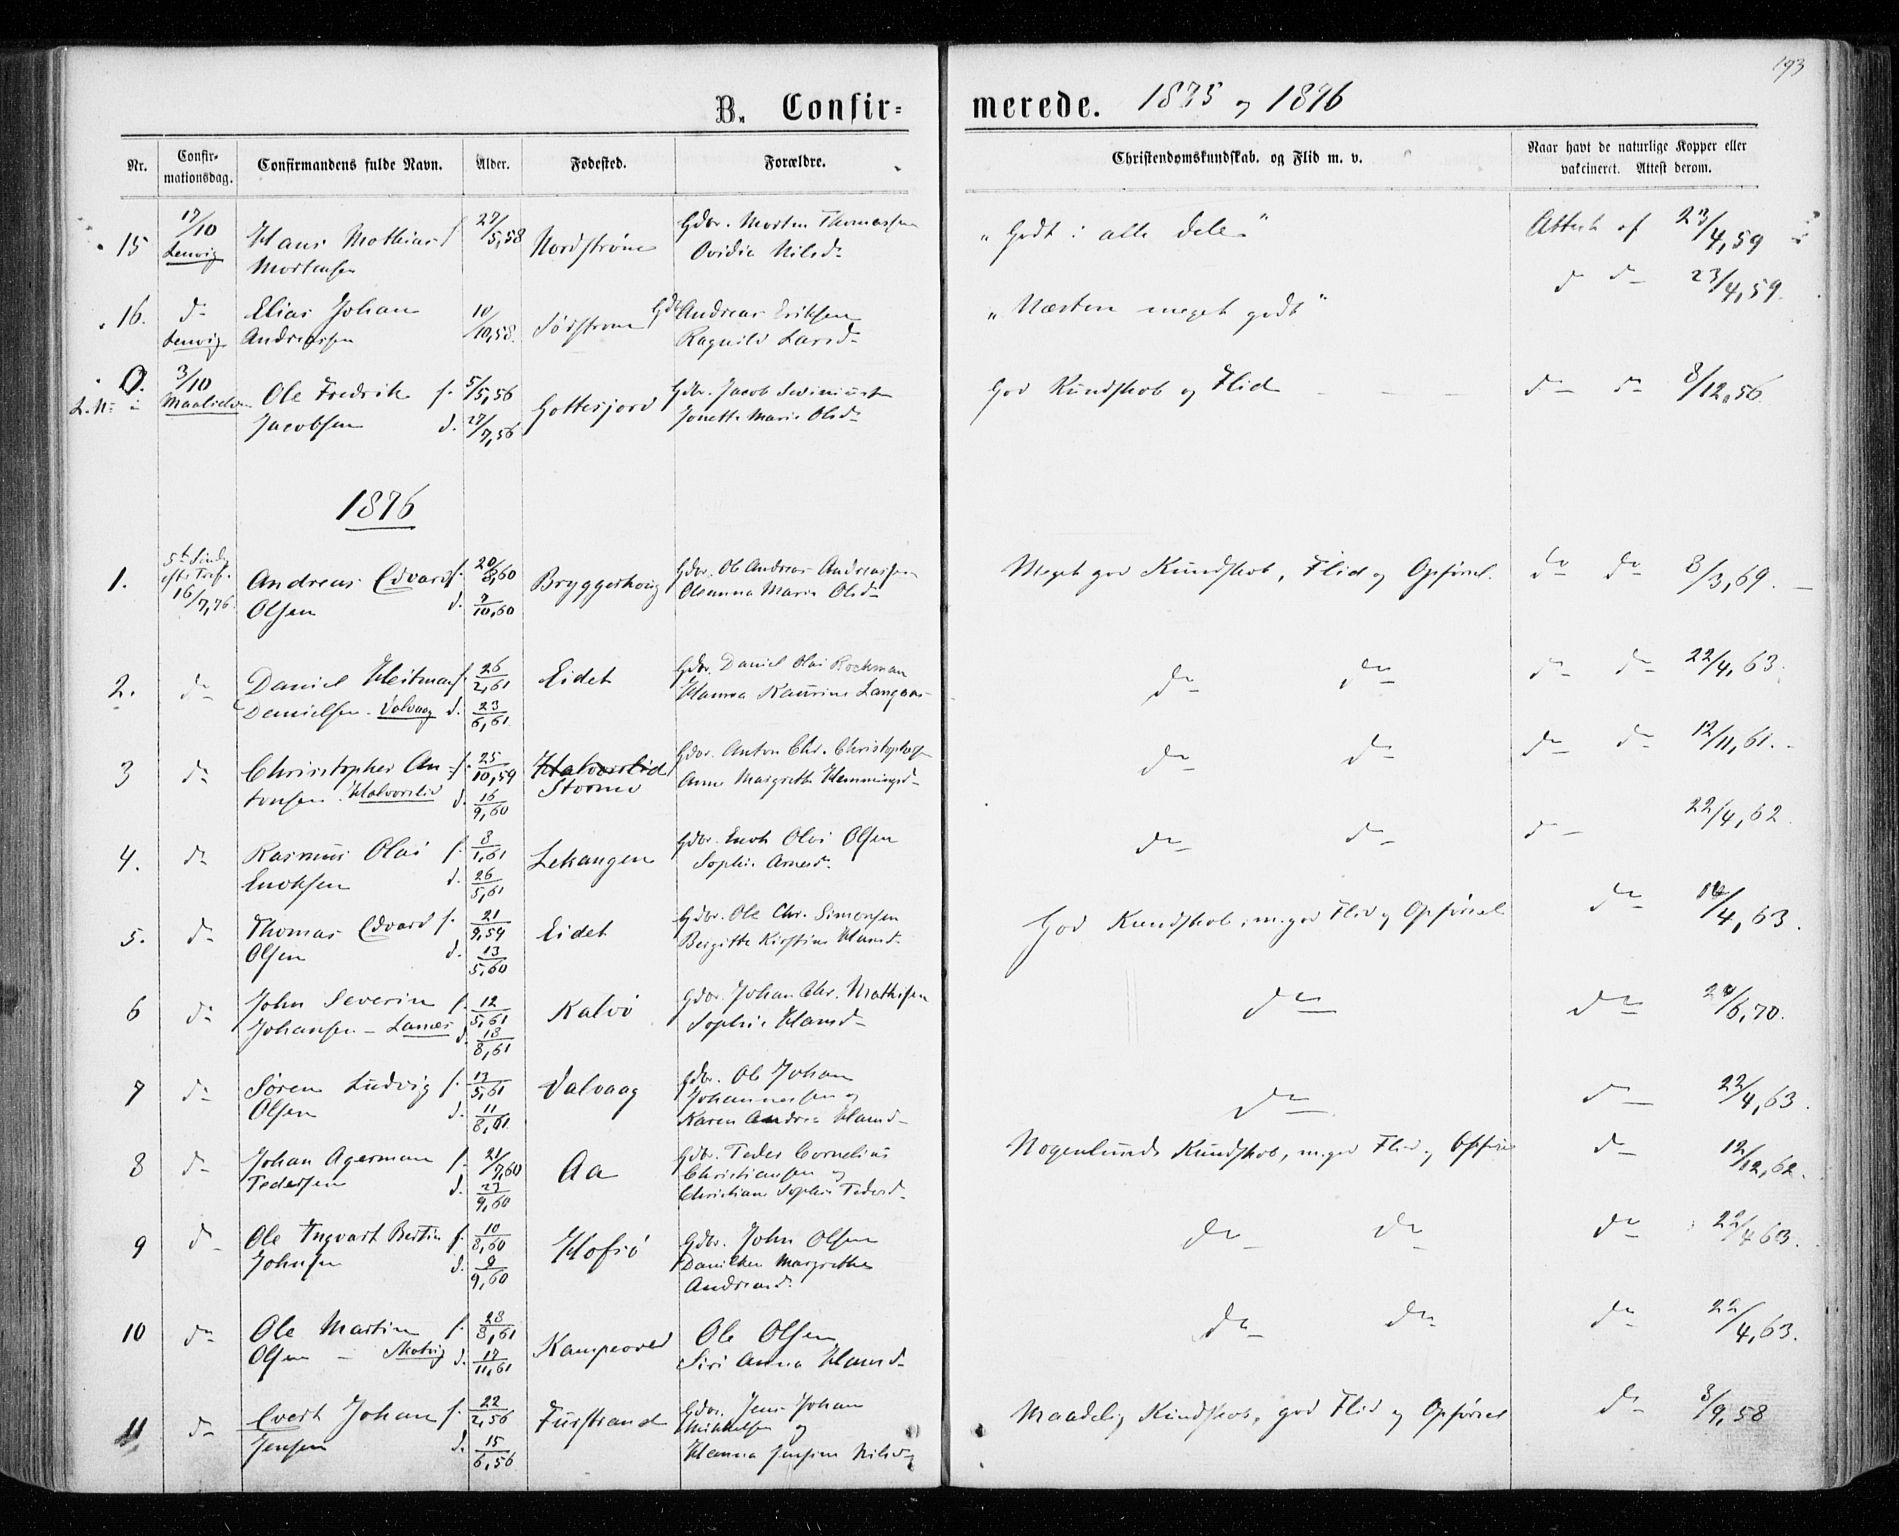 193
B. Confir- merede. 1875 og 1876
Nr. Confir-mationsdag. Confirmandens fulde Navn. Alder. Fødested. Forældre. Christendomskundskab. og Flid m. v. Naar havt de naturlige Kopper eller vakcineret. Attest derom.
15 17/10 Hans Mathias f 27/5,58 Nordstrøm Gdbr. Morten Thomassen "Godt i alle Dele" Attest af 23/4,59
Lenvig Mortensen Ovidia Nilsd.
16. do Elias Johan 10/10,58. Sørstrøm Gdb Andreas Eriksen "Næsten meget godt" do do 23/4,59.
Lenvig Andreassen Ragnild Larsd.
0. 3/10 Ole Fredrik f. 5/5,56 Gottesjord Gdbr. Jacob Severinius God Kundskab og Flid do do 8/12,56
Maalselven Jacobsen d. 27/7,56 Jonetta Marie Olsd.
1876
1. 5te Sønd. efter Tref. 16/7,76 Andreas Edvard f. 20/8,60 Bryggerhoug Gdbr. Ole Andreas Andreassen Meget god Kundskab, Flid og Opførsel. do do 8/3,69.
Olsen d. 7/10,60 Oleanna Marie Olsd.
2. do Daniel Heitman f. 26/2,61 Eidet Gdbr. Daniel Olai Bockman do do do do 22/4,63.
Danielsen. Valvaag d. 23/6,61 Hanna Kaurine Langaas
3 do Christopher An- f. 25/10,59 Halvorslid Gdbr. Anton Chr. Christophers. do do do do 12/11,61.
tonsen. Halvorslid d. 16/9,60 Stormo Anne Margrethe Hemmingsd.
4. do Rasmus Olai f. 8/1,61 Lekangen Gdbr. Enok Olai Olsen do do do 22/4,62
Enoksen d. 26/5,61 Sophie Arnesd.
5. do Thomas Edvard f. 21/9,59 Eidet Gdbr. Ole Chr. Simonsen God Kundskab, m. god Flid og Opførsel do 16/4,63.
Olsen d. 13/5,60 Bergitte Kirstine Hansd.
6 do John Severin f. 12/5,61 Kalvø Gdbr. Johan Chr. Mathisen do do 24/6,70.
Johansen - Lanes d. 18/8,61 Sophie Hansd.
7 do Søren Ludvig f. 13/5,61 Valvaag Gdbr. Ole Johan do do 22/4,63.
Olsen d. 11/8,61 Johannessen og
Karen Andrea Hansd.
8 do Johan Agerman f. 21/7,60 Aa Gdbr. Peder Cornelius Nogenlunde Kundskab, m. god Flid og Opførs do 12/12,62.
Pedersen d. 23/9,60 Christiansen og
Christiane Sophie Pedersd.
9 do Ole Ingvart Bertin f. 10/8,60 Hofsø Gdbr. John Olsen do do do 22/4 63.
Johnsen d. 9/9,60 Danilken Margrethe
Andreasd.
10 do Ole Martin f. 28/8,61 Kampevold Ole Olsen do do do 22/4,63.
Olsen - Skotvig d. 17/11,61 Siri Anna Hansd.
11 do Evert Johan f. 22/2,56 Furstrand Gdbr. Jens Johan Maadelig Kundskab, god Flid og Opførsel do 3/9,58
Jensen d. 15/6,56 Mikkelsen og
Hanna Jensine Nilsd.